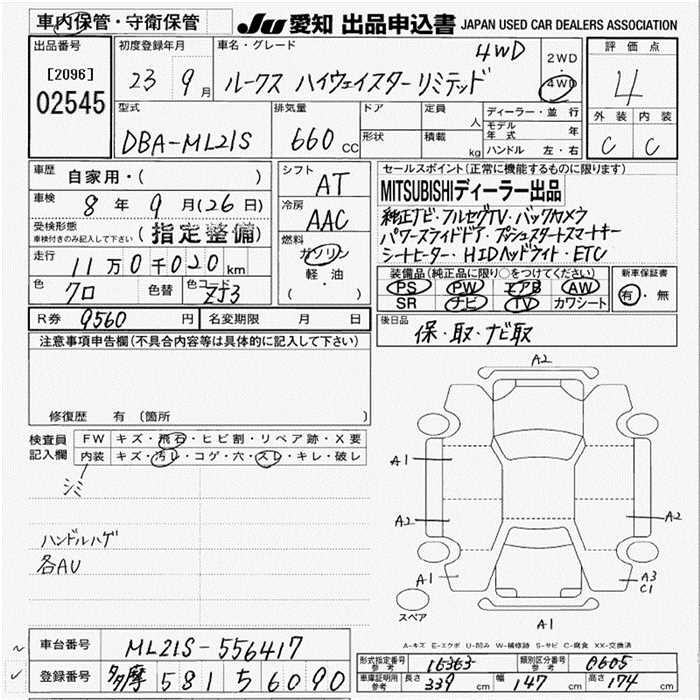 車内保管・守衛保管
JU 愛知 出品申込書 JAPAN USED CAR DEALERS ASSOCIATION
出品番号
[2096]
02545
初度登録年月
23 9月
車名・グレード
4WD
ルークス ハイウェイスター リミテッド
2WD
・
4WD
評価点
4
外装 内装
C C
型式
DBA-ML21S
排気量
660cc
ドア
形状
定員 人
積載 kg
ディーラー・並行
モデル年式 年
ハンドル 左・右
車歴
自家用・( )
車検
8年 9月(26日)
受検形態
車検付きのみ記入して下さい
(指定整備)
走行
11万0千020km
色 クロ 色替 色コード ZJ3
シフト
AT
冷房
AAC
燃料
ガソリン
軽・油
( )
セールスポイント(正常に機能するものに限ります)
MITSUBISHIディーラー出品
純正ナビ・フルセグTV・バックカメラ
パワースライドドア・プッシュスタートスマートキー
シートヒーター・HIDヘッドライト・ETC
装備品(純正品に限り○をつけてください)
PS PW エアB AW
SR ナビ TV カワシート
新車保証書
有・無
R券 9560円 名変期限 月 日
後日品
保・取・ナビ取
注意事項申告欄(不具合内容等は具体的に記入して下さい)
修復歴 有(箇所
検査員
記入欄
FW キズ・飛石・ヒビ割・リペア跡・X要
内装 キズ・汚レ・コゲ・穴・スレ・キレ・破レ
シミ
ハンドルハゲ
各AU
A2
A1
A2
A2
A1
A3
C1
A1
スペア
A-キズ E-エクボ U-凹み W-補修跡 S-サビ C-腐食 XX-交換済
車台番号 ML21S-556417
登録番号 多摩 581 5 6090
型式指定番号 参考 16363 類別区分番号 参考 0605
車庫証明用 参考 長さ 339cm 幅 147cm 高さ 174cm